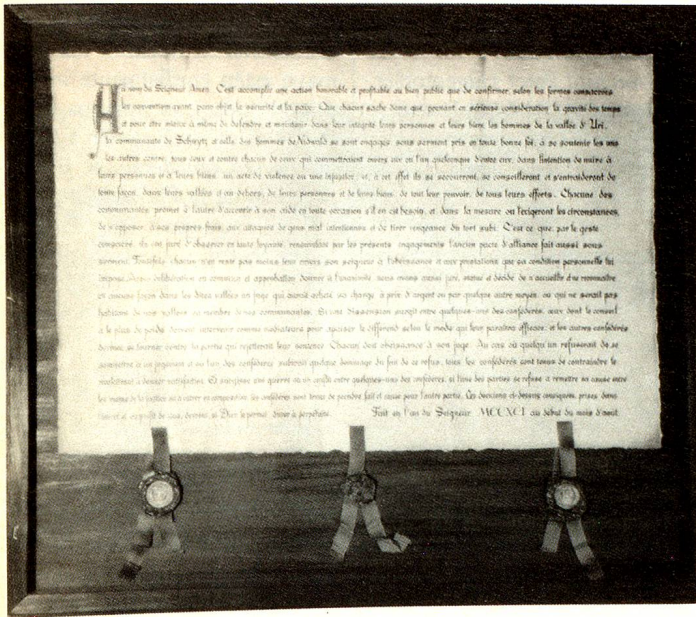 Au nom du Seigneur Amen. C'est accomplir une action honorable et profitable au bien public que de confirmer, selon les formes consacrées
les conventions ayant pour objet la sécurité et la paix. Que chacun sache donc que prenant en sérieuse considération la gravité des temps
et pour être mieux à même de défendre et maintenir dans leur intégrité leurs personnes et leurs biens, les hommes de la vallée d'Uri,
la communauté de Schwytz et celle des hommes de Nidwald se sont engagés, sous serment pris en toute bonne foi, à se soutenir les uns
les autres contre tous ceux et contre chacun de ceux qui commettraient envers eux ou l'un quelconque d'entre eux, dans l'intention de nuire à
leurs personnes et à leurs biens, un acte de violence ou une injustice, et, à cet effet ils se secourront, se conseilleront et s'entraideront de
toute façon, dans leurs vallées et au dehors, de leurs personnes et de leurs biens, de tout leur pouvoir, de tous leurs efforts. Chacune des
communautés promet à l'autre d'accourir à son aide en toute occasion s'il en est besoin, et, dans la mesure où l'exigeront les circonstances,
de s'opposer, à ses propres frais, aux attaques de gens mal intentionnés et de tirer vengeance du tort subi. C'est ce que, par le geste
consacré, ils ont juré d'observer en toute loyauté, renouvelant par les présents engagements l'ancien pacte d'alliance fait aussi sous
serment. Toutefois chacun n'en reste pas moins tenu envers son seigneur à l'obéissance et aux prestations que sa condition personnelle lui
impose. Après délibération en commun et approbation donnée à l'unanimité nous avons aussi juré, statué et décidé de n'accueillir et ne reconnaître
en aucune façon dans les dites vallées un juge qui aurait acheté sa charge à prix d'argent ou par quelque autre moyen, ou qui ne serait pas
habitant de nos vallées ou membre de nos communautés. Si une dissension surgit entre quelques-uns des confédérés, ceux dont le conseil
a le plus de poids devront intervenir comme médiateurs pour apaiser le différend selon le mode qui leur paraîtra efficace, et les autres confédérés
devront se tourner contre la partie qui rejetterait leur sentence. Chacun doit obéissance à son juge. Au cas où quelqu'un refuserait de se
soumettre à un jugement et où l'un des confédérés subirait quelque dommage du fait de ce refus, tous les confédérés sont tenus de contraindre le
récalcitrant à donner satisfaction. Et surgisse une guerre ou un conflit entre quelques-uns des confédérés, si l'une des parties se refuse à remettre sa cause entre
les mains de la justice ou à entrer en composition les confédérés sont tenus de prendre fait et cause pour l'autre partie. Ces décisions ci-dessus consignées, prises dans
l'intérêt et au profit de tous, devront, si Dieu le permet, durer à perpétuité. Fait en l'an du Seigneur MCCXCI au début du mois d'août